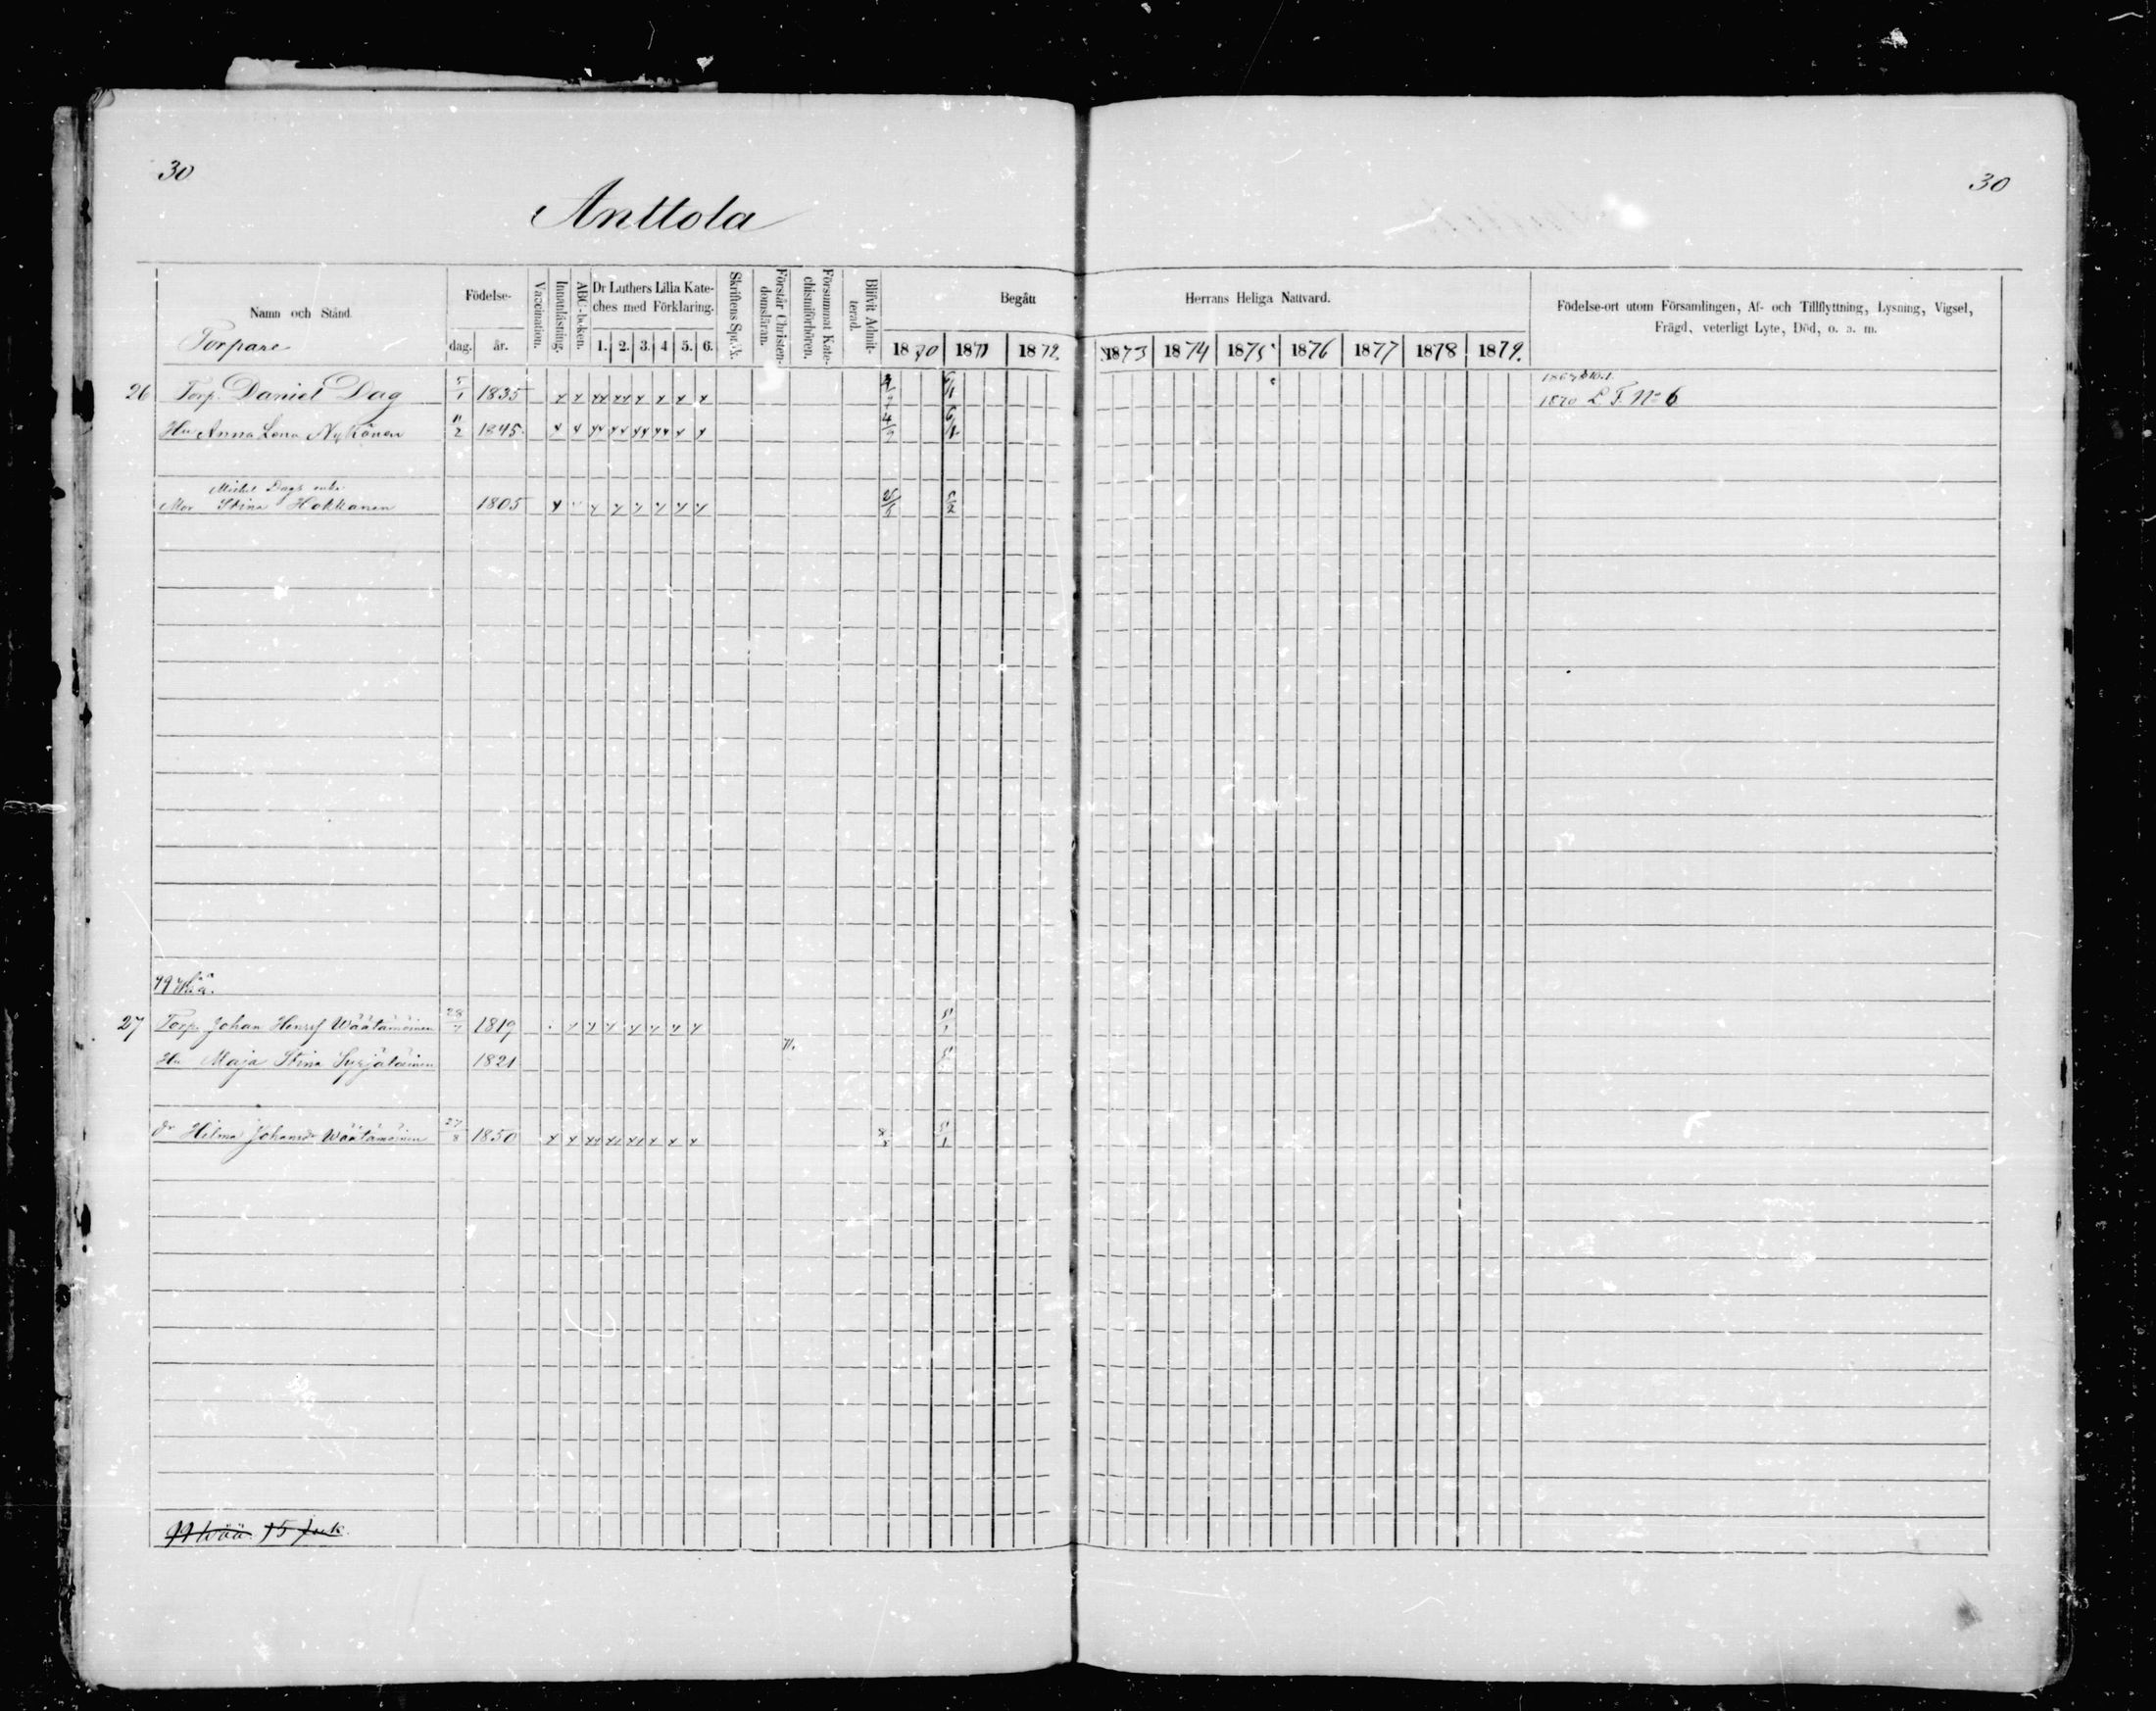 30
30
Anttola
Namn och Stånd
Födelse-
dag. år.
Vaccination.
Innanläsning.
ABC-boken.
Dr Luthers Lilla Kate-
ches med Förklaring.
1. 2. 3. 4 5. 6.
Skriftens Språk.
Förstår Christen-
domsläran.
Försummat Kate-
chismiförhören.
Blifvit Admit-
terad.
Begått Herrans Heliga Nattvard.
1870 1871 1872. 1873 1874 1875 1876 1877 1878 1879.
Födelse-ort utom Församlingen, Af- och Tillflyttning, Lysning, Vigsel,
Frägd, veterligt Lyte, Död, o. s. m.
Torpare
26 Torp. Daniel Dag 5/1 1835 x x xx xx x x x x 6/1
1870 L. F. No 6
Hu Anna Lena Nykönen 11/2 1845. x x xx xx xx xx x x 4/9 6/1
Michel Dags enka
Mor Stina Hokkanen 1805 x x x x x x x
27 Torp. Johan Henrif Wäätämöinen 28/7 1819 x x x x x x x
Hu Maja Stina Syrjäläinen 1821
dr Hilma Johansdr Wäätämöinen 27/8 1850 x x xx xx xx x x x